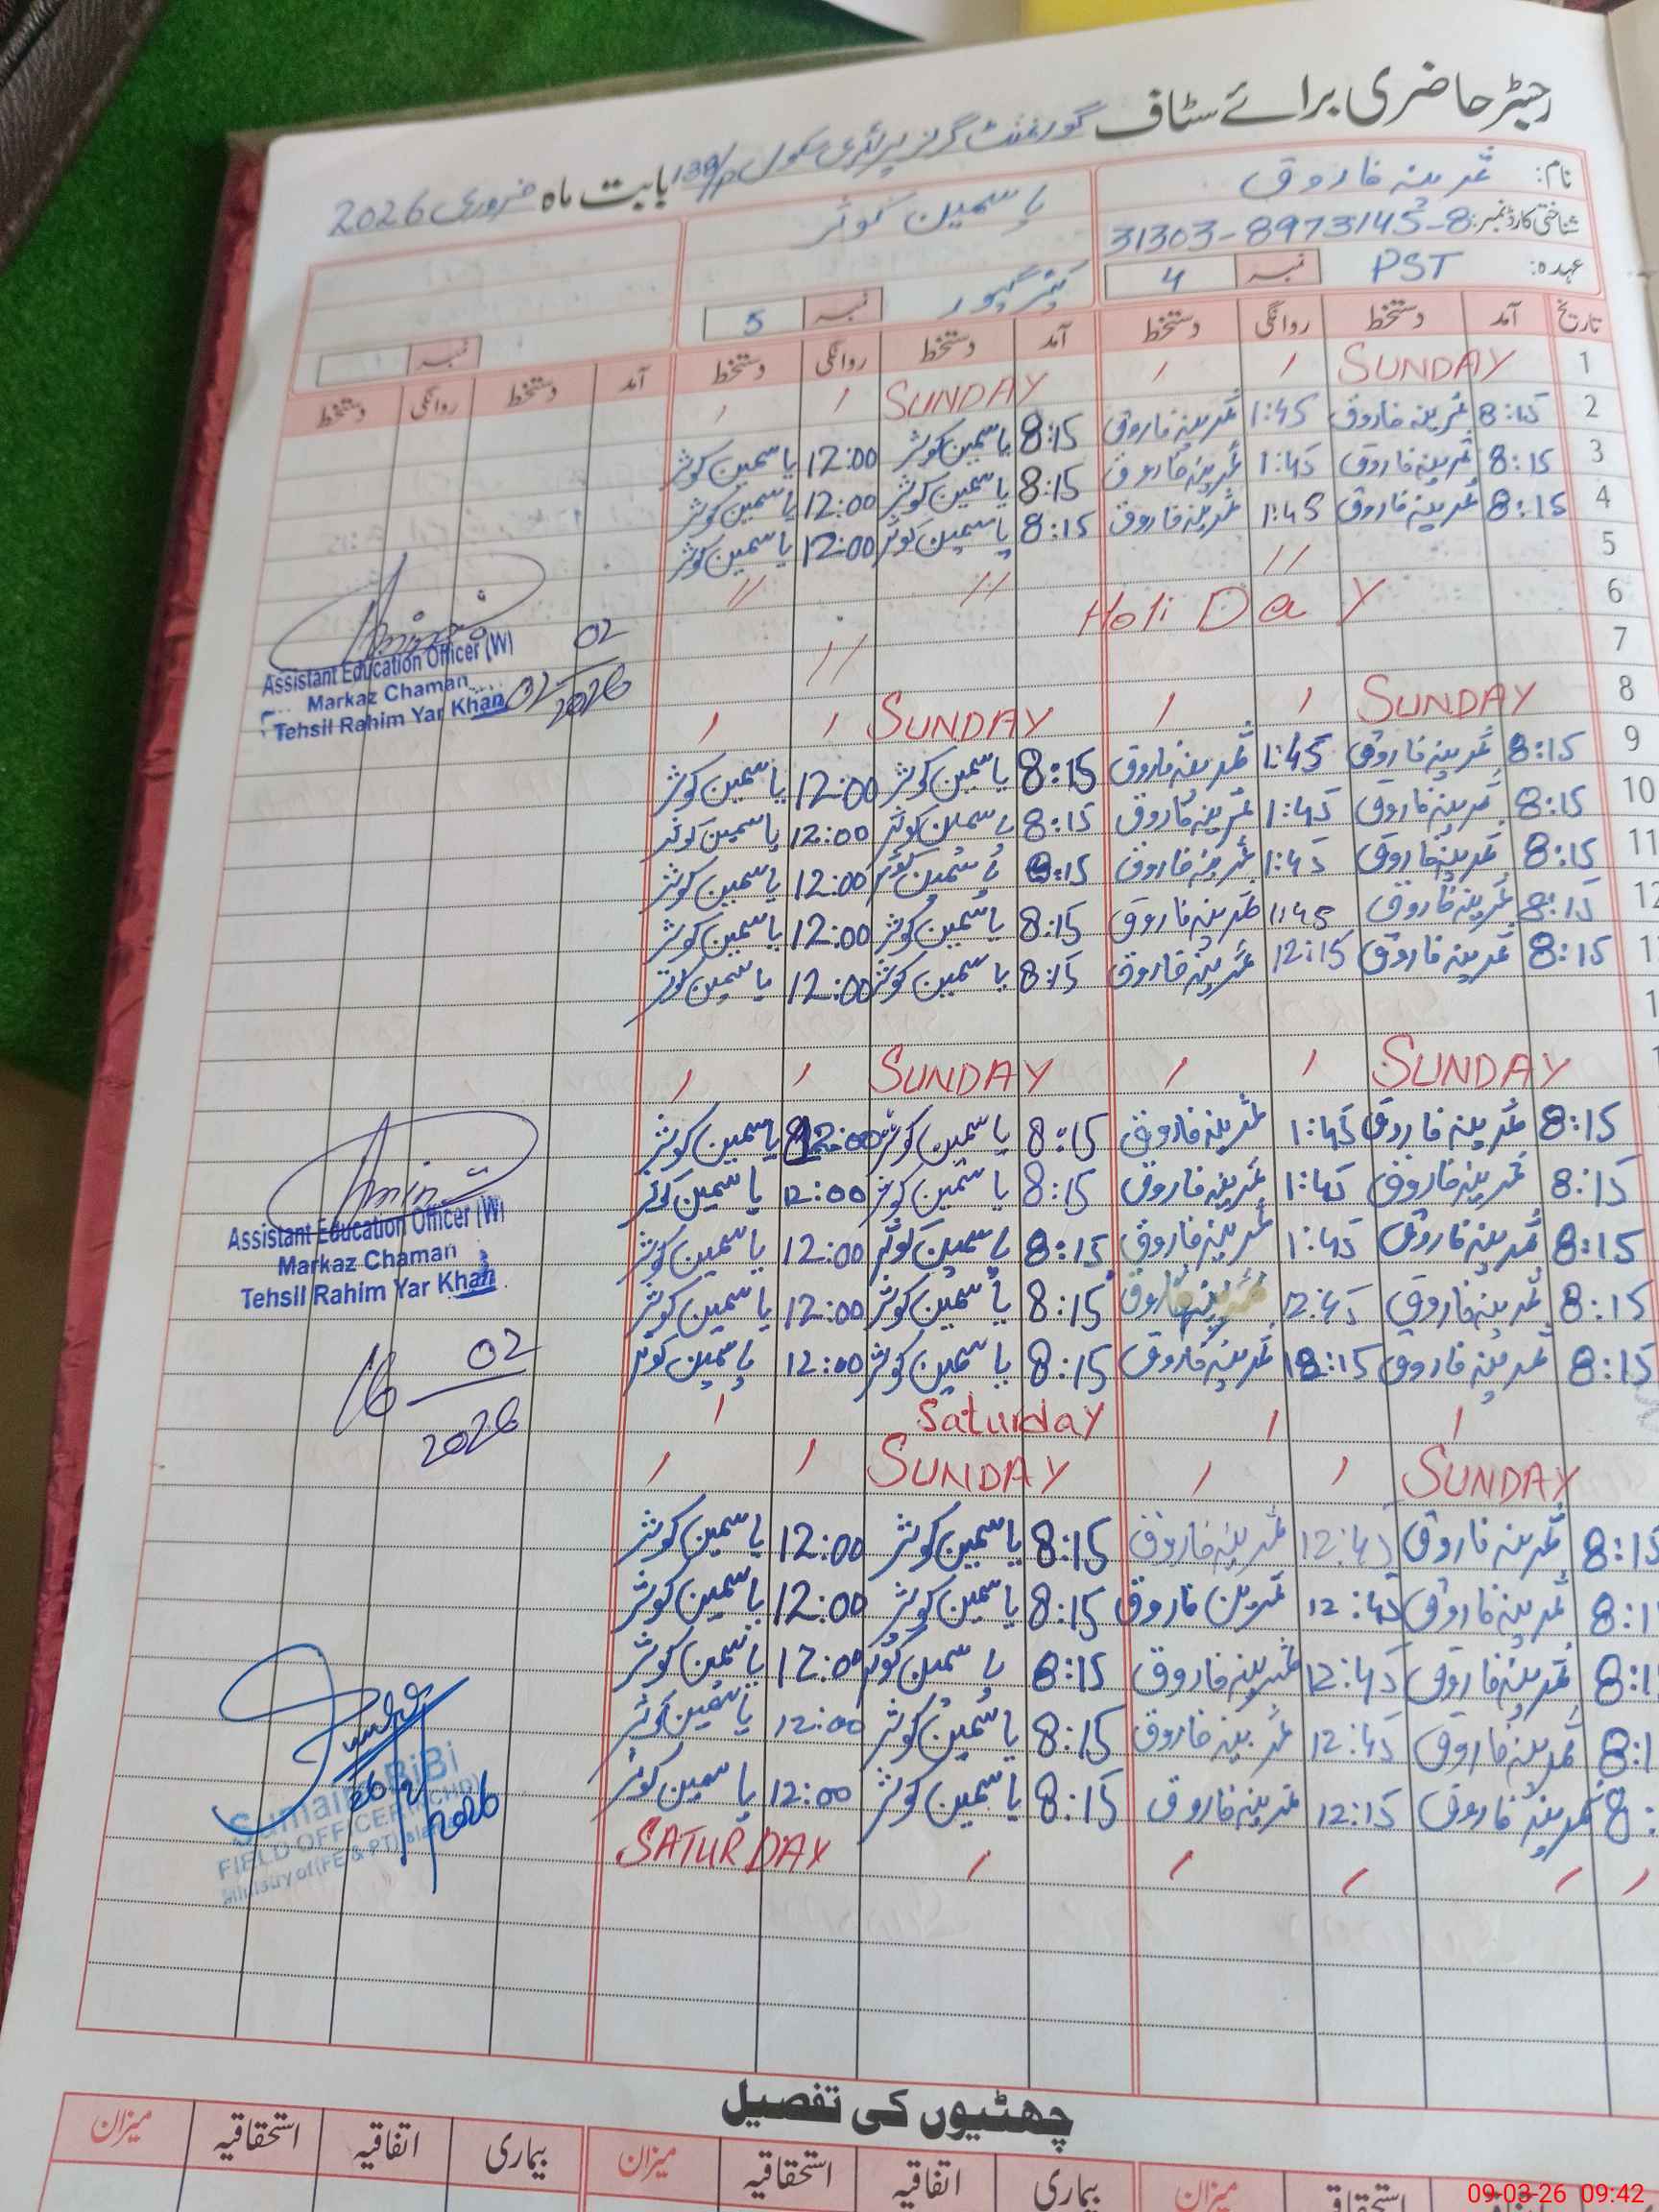 رجسٹر حاضری برائے سٹاف گورنمنٹ گرلز پرائمری سکول 138/P بابت ماہ فروری 2026
نام: ثمرینہ فاروق
یاسمین کوثر
شناختی کارڈ نمبر: 31303-8973145-8
عہدہ: PST نمبر 4
کیئرگیور نمبر 5
نمبر
تاریخ آمد دستخط روانگی دستخط آمد دستخط روانگی دستخط آمد دستخط روانگی دستخط
1 SUNDAY / / SUNDAY / /
2 8:15 ثمرینہ فاروق 1:45 ثمرینہ فاروق 8:15 یاسمین کوثر 12:00 یاسمین کوثر
3 8:15 ثمرینہ فاروق 1:45 ثمرینہ فاروق 8:15 یاسمین کوثر 12:00 یاسمین کوثر
4 8:15 ثمرینہ فاروق 1:45 ثمرینہ فاروق 8:15 یاسمین کوثر 12:00 یاسمین کوثر
5 // // //
6 Holi Day
7 //
8 SUNDAY / / SUNDAY / /
9 8:15 ثمرینہ فاروق 1:45 ثمرینہ فاروق 8:15 یاسمین کوثر 12:00 یاسمین کوثر
10 8:15 ثمرینہ فاروق 1:45 ثمرینہ فاروق 8:15 یاسمین کوثر 12:00 یاسمین کوثر
11 8:15 ثمرینہ فاروق 1:45 ثمرینہ فاروق 8:15 یاسمین کوثر 12:00 یاسمین کوثر
12 8:15 ثمرینہ فاروق 1:45 ثمرینہ فاروق 8:15 یاسمین کوثر 12:00 یاسمین کوثر
8:15 ثمرینہ فاروق 12:15 ثمرینہ فاروق 8:15 یاسمین کوثر 12:00 یاسمین کوثر
SUNDAY / / SUNDAY / /
8:15 ثمرینہ فاروق 1:45 ثمرینہ فاروق 8:15 یاسمین کوثر 12:00 یاسمین کوثر
8:15 ثمرینہ فاروق 1:45 ثمرینہ فاروق 8:15 یاسمین کوثر 12:00 یاسمین کوثر
8:15 ثمرینہ فاروق 1:45 ثمرینہ فاروق 8:15 یاسمین کوثر 12:00 یاسمین کوثر
8:15 ثمرینہ فاروق 12:45 ثمرینہ فاروق 8:15 یاسمین کوثر 12:00 یاسمین کوثر
8:15 ثمرینہ فاروق 12:15 ثمرینہ فاروق 8:15 یاسمین کوثر 12:00 یاسمین کوثر
/ / Saturday /
SUNDAY / / SUNDAY / /
8:15 ثمرینہ فاروق 12:45 ثمرینہ فاروق 8:15 یاسمین کوثر 12:00 یاسمین کوثر
8:1 ثمرینہ فاروق 12:45 ثمرین فاروق 8:15 یاسمین کوثر 12:00 یاسمین کوثر
8:1 ثمرینہ فاروق 12:45 ثمرینہ فاروق 8:15 یاسمین کوثر 12:00 یاسمین کوثر
8:1 ثمرینہ فاروق 12:45 ثمرینہ فاروق 8:15 یاسمین کوثر 12:00 یاسمین کوثر
8: ثمرینہ فاروق 12:15 ثمرینہ فاروق 8:15 یاسمین کوثر 12:00 یاسمین کوثر
/ / / / / SATURDAY
Assistant Education Officer (W)
Markaz Chaman
Tehsil Rahim Yar Khan
02/02/2026
Assistant Education Officer (W)
Markaz Chaman
Tehsil Rahim Yar Khan
16 02/2026
Sumaira BiBi
FIELD OFFICER
Ministry of (FE & PT)
26/2/2026
چھٹیوں کی تفصیل
میزان بیماری اتفاقیہ استحقاقیہ میزان بیماری اتفاقیہ استحقاقیہ میزان
09-03-26 09:42